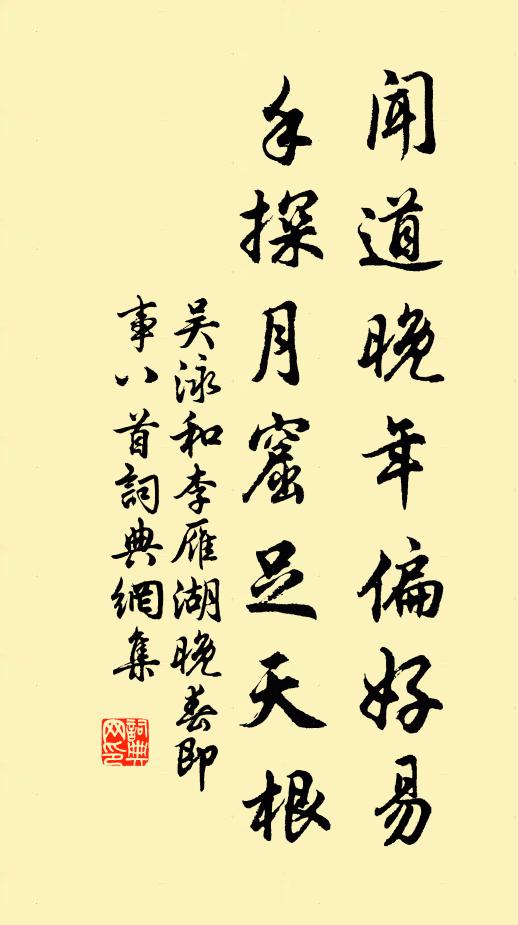 聞道晚年偏好易
手探月窟足天根
吴泳和李雁湖晚春即
事八首詞典網集
詞典
网印